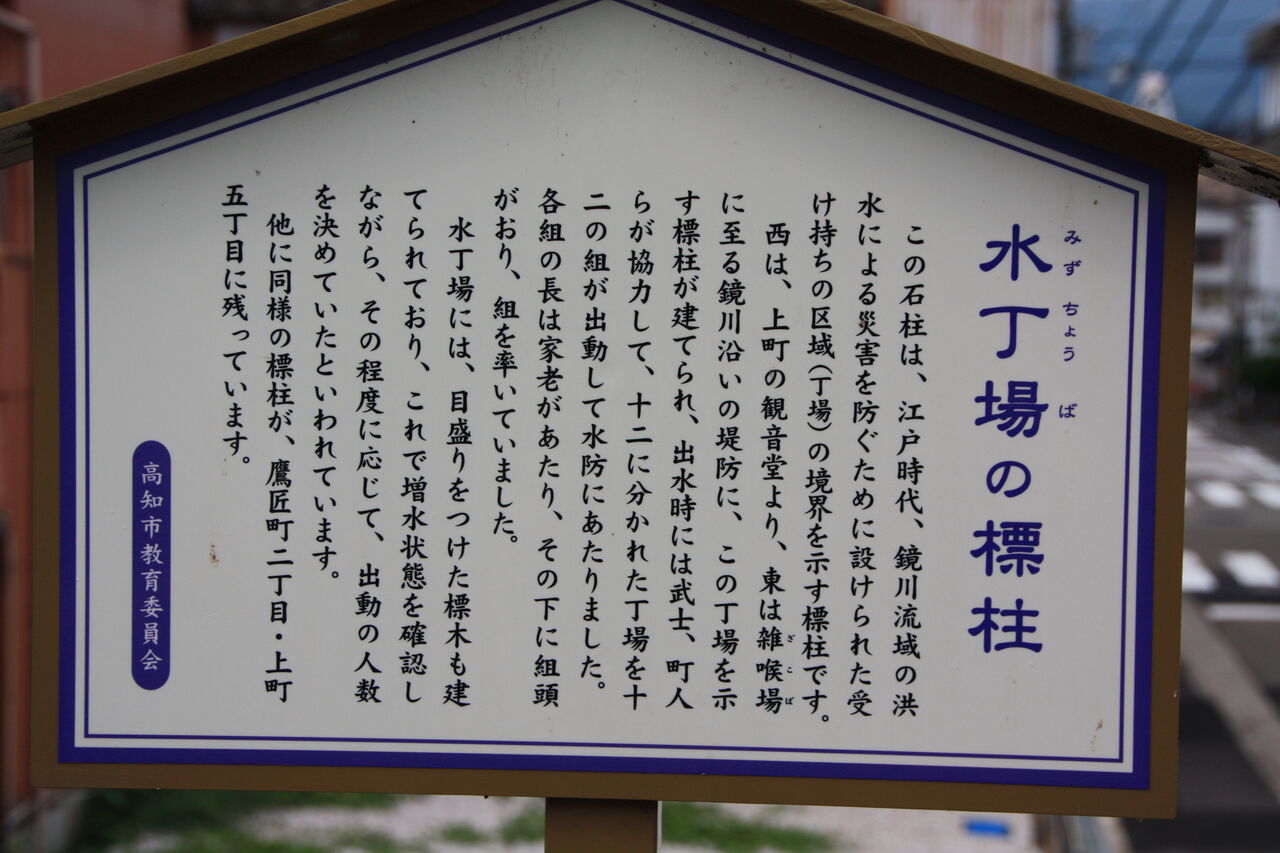 水丁場の標柱
みずちょうば
この石柱は、江戸時代、鏡川流域の洪
水による災害を防ぐために設けられた受
け持ちの区域（丁場）の境界を示す標柱です。
西は、上町の観音堂より、東は雑喉場
ざこば
に至る鏡川沿いの堤防に、この丁場を示
す標柱が建てられ、出水時には武士、町人
らが協力して、十二に分かれた丁場を十
二の組が出動して水防にあたりました。
各組の長は家老があたり、その下に組頭
がおり、組を率いていました。
水丁場には、目盛りをつけた標木も建
てられており、これで増水状態を確認し
ながら、その程度に応じて、出動の人数
を決めていたといわれています。
他に同様の標柱が、鷹匠町二丁目・上町
五丁目に残っています。
高知市教育委員会